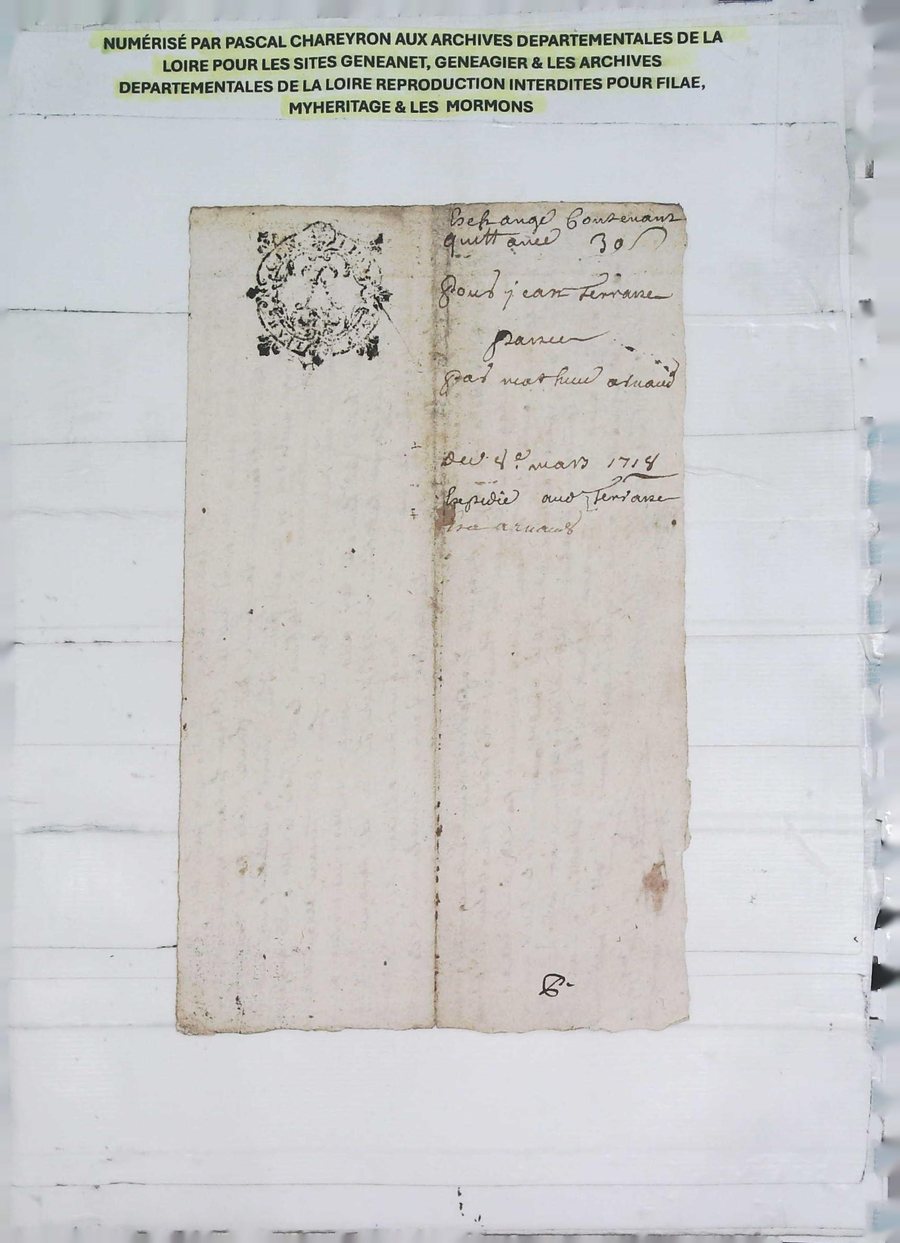 NUMÉRISÉ PAR PASCAL CHAREYRON AUX ARCHIVES DEPARTEMENTALES DE LA
LOIRE POUR LES SITES GENEANET, GENEAGIER & LES ARCHIVES
DEPARTEMENTALES DE LA LOIRE REPRODUCTION INTERDITES POUR FILAE,
MYHERITAGE & LES MORMONS
Eschange Contenant
quittance 30
pour jean Terrasse
par mathieu arnaud
du 8e mars 1718
Expedié aud Terrasse
arnaud